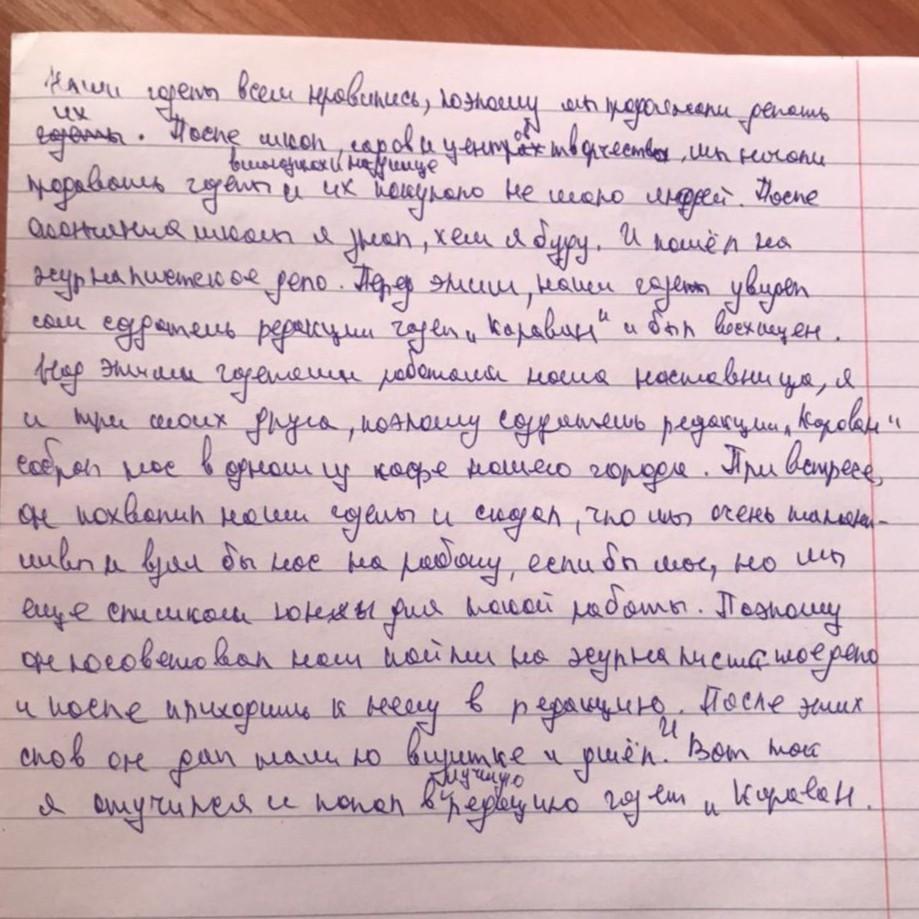 Наши газеты всем нравились, поэтому мы продолжали делать
их
газеты. После школ, садов и центрах творчества, мы начали
выходили на улице
продавать газеты и их покупало не мало людей. После
окончания школы я знал, кем я буду. И пошёл на
журналистское дело. Перед этим, наши газеты увидел
сам создатель редакции газет „Караван" и был восхищен.
Над этими газетами работали наша наставница, я
и три моих друга, поэтому создатель редакции „Караван"
собрал нас в одном из кафе нашего города. При встрече,
он похвалил наши газеты и сказал, что мы очень талан-
ливы и взял бы нас на работу, если бы мог, но мы
еще слишком юны для такой работы. Поэтому
он посоветовал нам пойти на журналисткое дело
и после приходить к нему в редакцию. После этих
слов он дал визитке и ушёл. И Вот так
лучшую
я отучился и попал в редакцию газет „Караван.